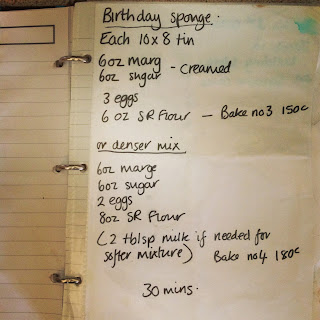 Birthday sponge.
Each 10x8 tin
6oz marg
6oz sugar - creamed
3 eggs
6 oz SR Flour - Bake no3 150c
or denser mix
6oz marge
6oz sugar
2 eggs
8oz SR Flour
(2 tblsp milk if needed for
softer mixture) Bake no4 180c
30 mins.